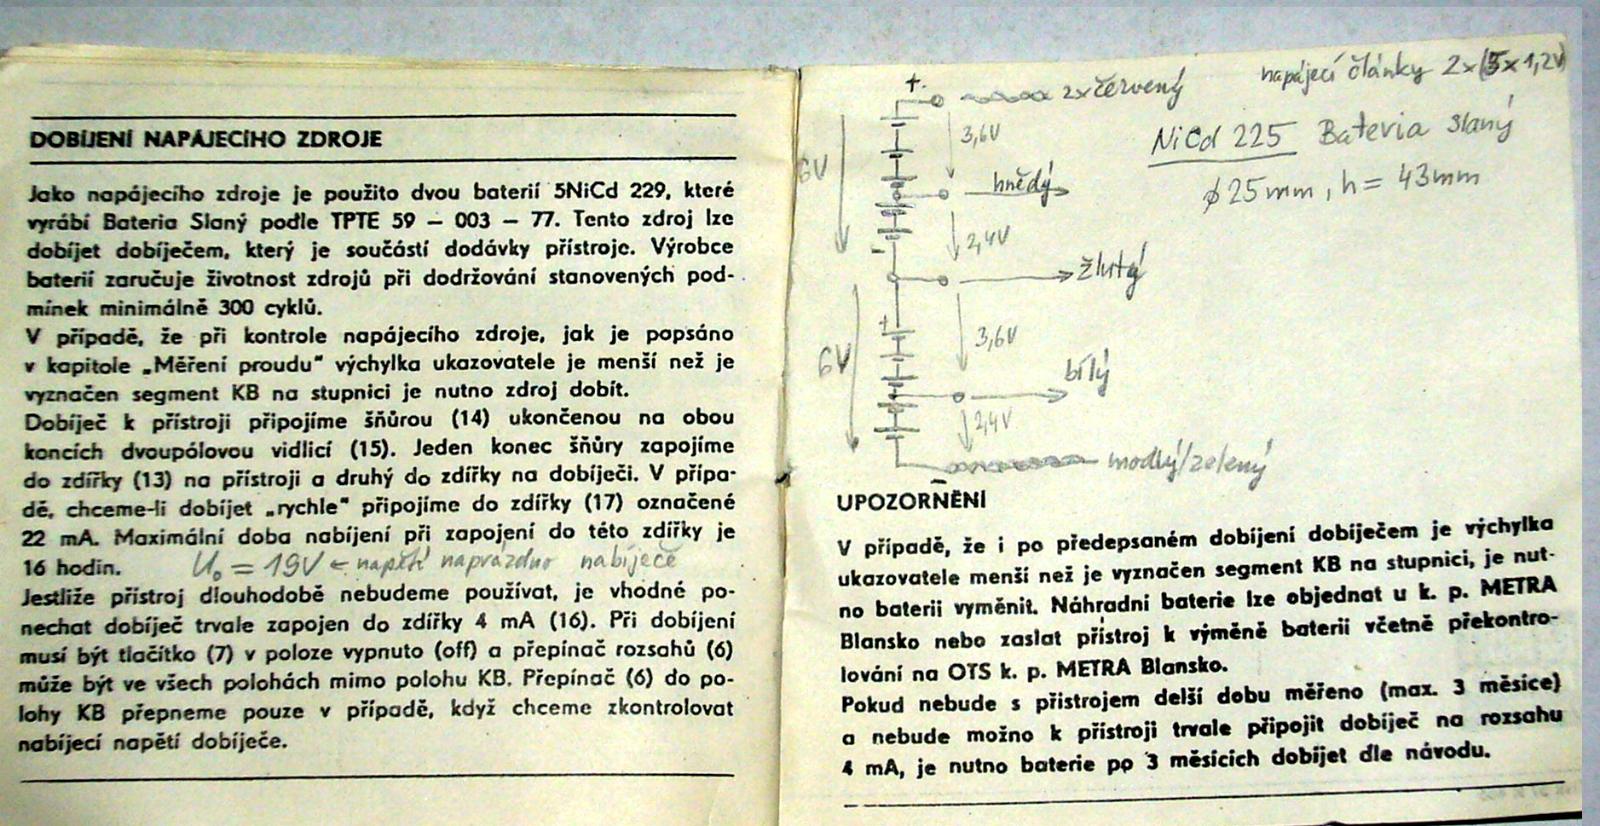 DOBÍJENÍ NAPÁJECÍHO ZDROJE
Jako napájecího zdroje je použito dvou baterií 5NiCd 229, které
vyrábí Bateria Slaný podle TPTE 59 — 003 — 77. Tento zdroj lze
dobíjet dobíječem, který je součástí dodávky přístroje. Výrobce
baterií zaručuje životnost zdrojů při dodržování stanovených pod-
mínek minimálně 300 cyklů.
V případě, že při kontrole napájecího zdroje, jak je popsáno
v kapitole „Měření proudu" výchylka ukazovatele je menší než je
vyznačen segment KB na stupnici je nutno zdroj dobít.
Dobíječ k přístroji připojíme šňůrou (14) ukončenou na obou
koncích dvoupólovou vidlicí (15). Jeden konec šňůry zapojíme
do zdířky (13) na přístroji a druhý do zdířky na dobíječi. V přípa-
dě, chceme-li dobíjet „rychle" připojíme do zdířky (17) označené
22 mA. Maximální doba nabíjení při zapojení do této zdířky je
16 hodin. U₀ = 19V ← napětí naprázdno nabíječe
Jestliže přístroj dlouhodobě nebudeme používat, je vhodné po-
nechat dobíječ trvale zapojen do zdířky 4 mA (16). Při dobíjení
musí být tlačítko (7) v poloze vypnuto (off) a přepínač rozsahů (6)
může být ve všech polohách mimo polohu KB. Přepínač (6) do po-
lohy KB přepneme pouze v případě, když chceme zkontrolovat
nabíjecí napětí dobíječe.
napájecí články 2x(5x1,2V)
NiCd 225 Bateria Slaný
ø 25mm, h = 43mm
+
2x červený
3,6V
6V
hnědý
2,4V
-
žlutý
+
3,6V
6V
bílý
2,4V
modrý/zelený
-
UPOZORNĚNÍ
V případě, že i po předepsaném dobíjení dobíječem je výchylka
ukazovatele menší než je vyznačen segment KB na stupnici, je nut-
no baterii vyměnit. Náhradní baterie lze objednat u k. p. METRA
Blansko nebo zaslat přístroj k výměně baterií včetně překontro-
lování na OTS k. p. METRA Blansko.
Pokud nebude s přístrojem delší dobu měřeno (max. 3 měsíce)
a nebude možno k přístroji trvale připojit dobíječ na rozsahu
4 mA, je nutno baterie po 3 měsících dobíjet dle návodu.